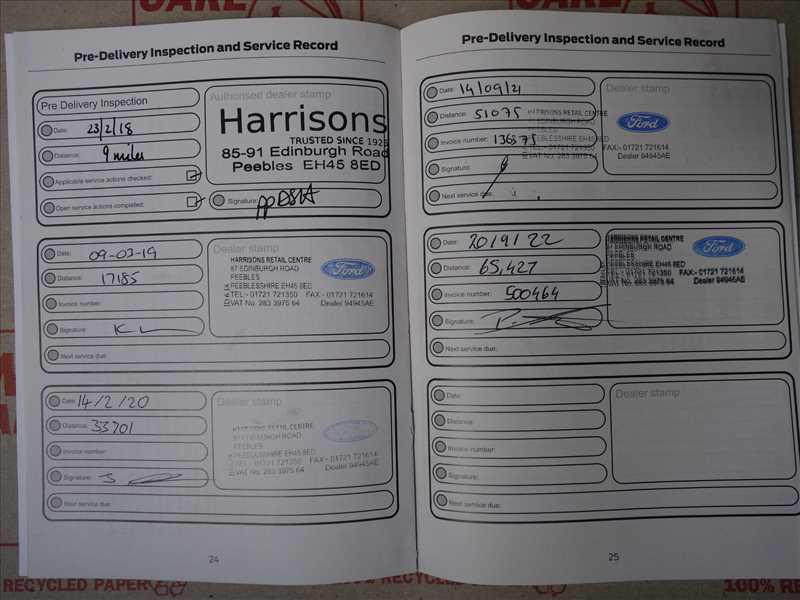 Pre-Delivery Inspection and Service Record
Pre Delivery Inspection
Date: 23/2/18
Distance: 9 miles
Applicable service actions checked:
Open service actions completed:
Authorised dealer stamp
Harrisons
TRUSTED SINCE 1925
85-91 Edinburgh Road
Peebles EH45 8ED
Signature:
Date: 09-03-19
Distance: 17185
Invoice number:
Signature:
Next service due:
Dealer stamp
HARRISONS RETAIL CENTRE
87 EDINBURGH ROAD
PEEBLES
PEEBLESSHIRE EH45 8ED
TEL:- 01721 721350 FAX:- 01721 721614
VAT No. 283 3975 64 Dealer 94945AE
Ford
Date: 14/2/20
Distance: 33701
Invoice number:
Signature:
Next service due:
Dealer stamp
HARRISONS RETAIL CENTRE
EDINBURGH ROAD
PEEBLES
PEEBLESSHIRE EH45 8ED
TEL:- 01721 721350 FAX:- 01721 721614
VAT No. 283 3975 64 Dealer 94945AE
24
Pre-Delivery Inspection and Service Record
Date: 14/09/21
Distance: 51075
Invoice number: 136375
Signature:
Next service due:
Dealer stamp
HARRISONS RETAIL CENTRE
EDINBURGH ROAD
PEEBLES
PEEBLESSHIRE EH45 8ED
FAX:- 01721 721614
VAT No. 283 3975 64 Dealer 94945AE
Ford
Date: 20/9/22
Distance: 65,427
Invoice number: 500464
Signature:
Next service due:
HARRISONS RETAIL CENTRE
EDINBURGH ROAD
PEEBLES
PEEBLESSHIRE EH45 8ED
TEL:- 01721 721350 FAX:- 01721 721614
VAT No. 283 3975 64 Dealer 94945AE
Ford
Date:
Distance:
Invoice number:
Signature:
Next service due:
Dealer stamp
25
RECYCLED PAPER
100% RE